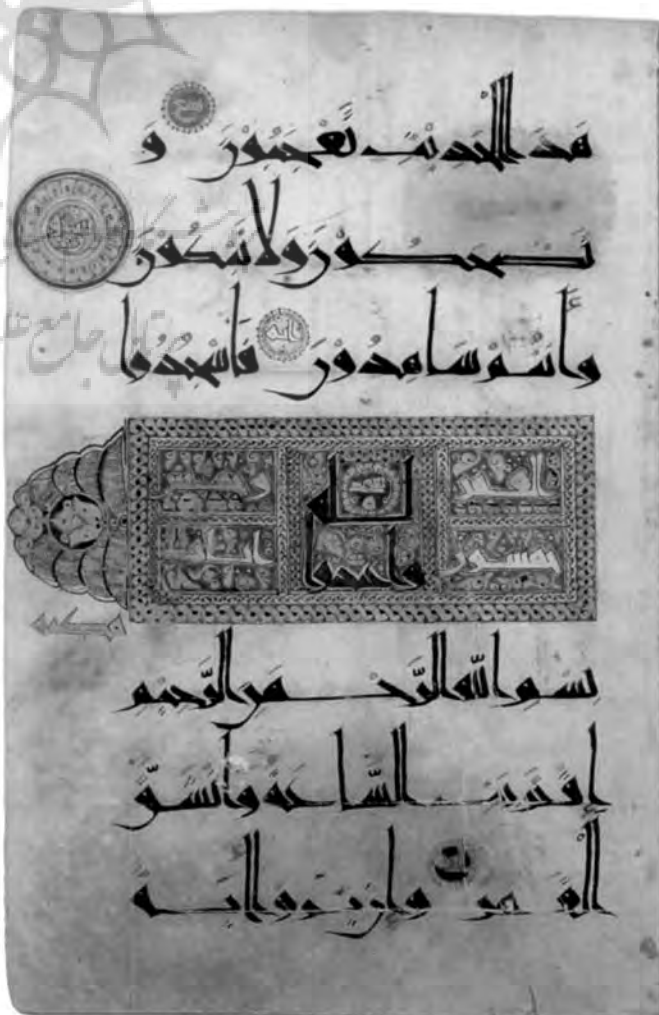 هَذَا الْحَدِيثِ تَعْجَبُونَ وَ
تَضْحَكُونَ وَلَا تَبْكُونَ
وَأَنْتُمْ سَامِدُونَ آية فَاسْجُدُوا
لله
واعبدوا
مكية
بِسْمِ اللّٰهِ الرَّحْمَنِ الرَّحِيمِ
اِقْتَرَبَتِ السَّاعَةُ وَانْشَقَّ
الْقَمَرُ وَإِنْ يَرَوْا آيَةً
پرتال جامع علو